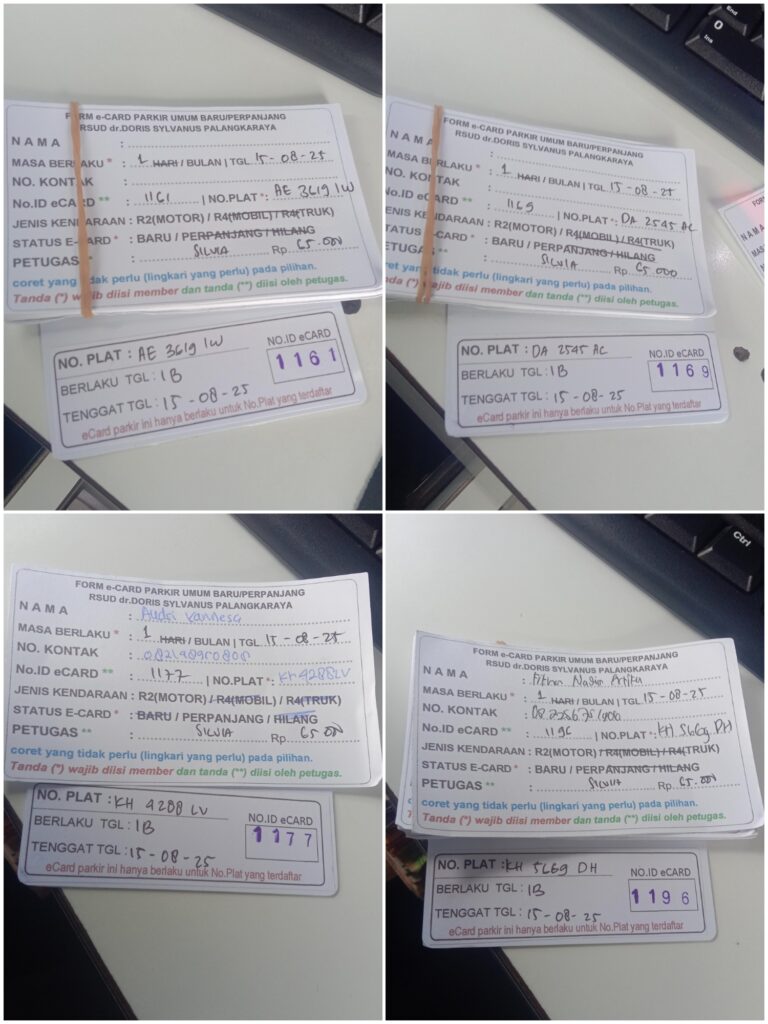 End
0
Ins
FORM e-CARD PARKIR UMUM BARU/PERPANJANG
RSUD dr.DORIS SYLVANUS PALANGKARAYA
NAMA :
MASA BERLAKU * : 1 HARI / BULAN | TGL 15-08-25
NO. KONTAK :
No.ID eCARD ** : 1161 | NO.PLAT *: AE 3619 IW
JENIS KENDARAAN : R2(MOTOR) / R4(MOBIL) / R4(TRUK)
STATUS E-CARD * : BARU / PERPANJANG / HILANG
PETUGAS ** : SILVIA Rp. 65.000
coret yang tidak perlu (lingkari yang perlu) pada pilihan.
Tanda (*) wajib diisi member dan tanda (**) diisi oleh petugas.
NO. PLAT : AE 3619 IW
NO.ID eCARD
1161
BERLAKU TGL : 1B
TENGGAT TGL : 15-08-25
eCard parkir ini hanya berlaku untuk No.Plat yang terdaftar
FORM e-CARD PARKIR UMUM BARU/PERPANJANG
RSUD dr.DORIS SYLVANUS PALANGKARAYA
NAMA :
MASA BERLAKU * : 1 HARI / BULAN | TGL 15-08-25
NO. KONTAK :
No.ID eCARD ** : 1169 | NO.PLAT *: DA 2545 AC
JENIS KENDARAAN : R2(MOTOR) / R4(MOBIL) / R4(TRUK)
STATUS E-CARD * : BARU / PERPANJANG / HILANG
PETUGAS ** : SILVIA Rp. 65.000
coret yang tidak perlu (lingkari yang perlu) pada pilihan.
Tanda (*) wajib diisi member dan tanda (**) diisi oleh petugas.
NO. PLAT : DA 2545 AC
NO.ID eCARD
1169
BERLAKU TGL : 1B
TENGGAT TGL : 15-08-25
eCard parkir ini hanya berlaku untuk No.Plat yang terdaftar
FORM e-CARD PARKIR UMUM BARU/PERPANJANG
RSUD dr.DORIS SYLVANUS PALANGKARAYA
NAMA : Audri Vannesa
MASA BERLAKU * : 1 HARI / BULAN | TGL 15-08-25
NO. KONTAK :
No.ID eCARD ** : 1177 | NO.PLAT *: KH 4288 LV
JENIS KENDARAAN : R2(MOTOR) / R4(MOBIL) / R4(TRUK)
STATUS E-CARD * : BARU / PERPANJANG / HILANG
PETUGAS ** : SILVIA Rp. 65.000
coret yang tidak perlu (lingkari yang perlu) pada pilihan.
Tanda (*) wajib diisi member dan tanda (**) diisi oleh petugas.
NO. PLAT : KH 4288 LV
NO.ID eCARD
1177
BERLAKU TGL : 1B
TENGGAT TGL : 15-08-25
eCard parkir ini hanya berlaku untuk No.Plat yang terdaftar
Ctrl
FORM e-CARD PARKIR UMUM BARU/PERPANJANG
RSUD dr.DORIS SYLVANUS PALANGKARAYA
NAMA :
MASA BERLAKU * : 1 HARI / BULAN | TGL 15-08-25
NO. KONTAK :
No.ID eCARD ** : 1196 | NO.PLAT *: KH 5669 DH
JENIS KENDARAAN : R2(MOTOR) / R4(MOBIL) / R4(TRUK)
STATUS E-CARD * : BARU / PERPANJANG / HILANG
PETUGAS ** : SILVIA Rp. 65.000
coret yang tidak perlu (lingkari yang perlu) pada pilihan.
Tanda (*) wajib diisi member dan tanda (**) diisi oleh petugas.
NO. PLAT : KH 5669 DH
NO.ID eCARD
1196
BERLAKU TGL : 1B
TENGGAT TGL : 15-08-25
eCard parkir ini hanya berlaku untuk No.Plat yang terdaftar